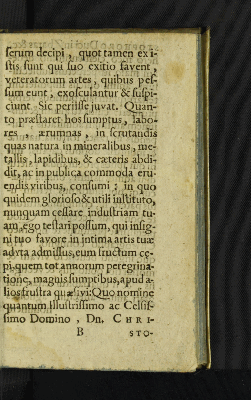 serum decipi, quot tamen exi-
stis sunt qui suo exitio favent,
veteratorum artes, quibus pes-
sum eunt, exosculantur & suspi-
ciunt Sic periisse juvat. Quan-
to præstaret hos sumptus, labo-
res, ærumnas, in scrutandis
quas natura in mineralibus, me-
tallis, lapidibus, & cæteris abdi-
dit, ac in publica commoda eru-
endis viribus, consumi; in quo
quidem glorioso & utili instituto,
nunquam cessare industriam tu-
am, ego testari possum, qui insig-
ni tuo favore in intima artis tuæ
adyta admissus, eum fructum cę-
pi, quem tot annorum peregrina-
tione, magnis sumptibus, apud a-
lios frustra quæsivi: Quo nomine
quantum Illustrissimo ac Celsis-
simo Domino, Dn. CHRI-
B STO-